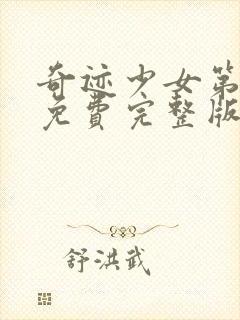 奇迹少女第
免费完整版
舒洪武